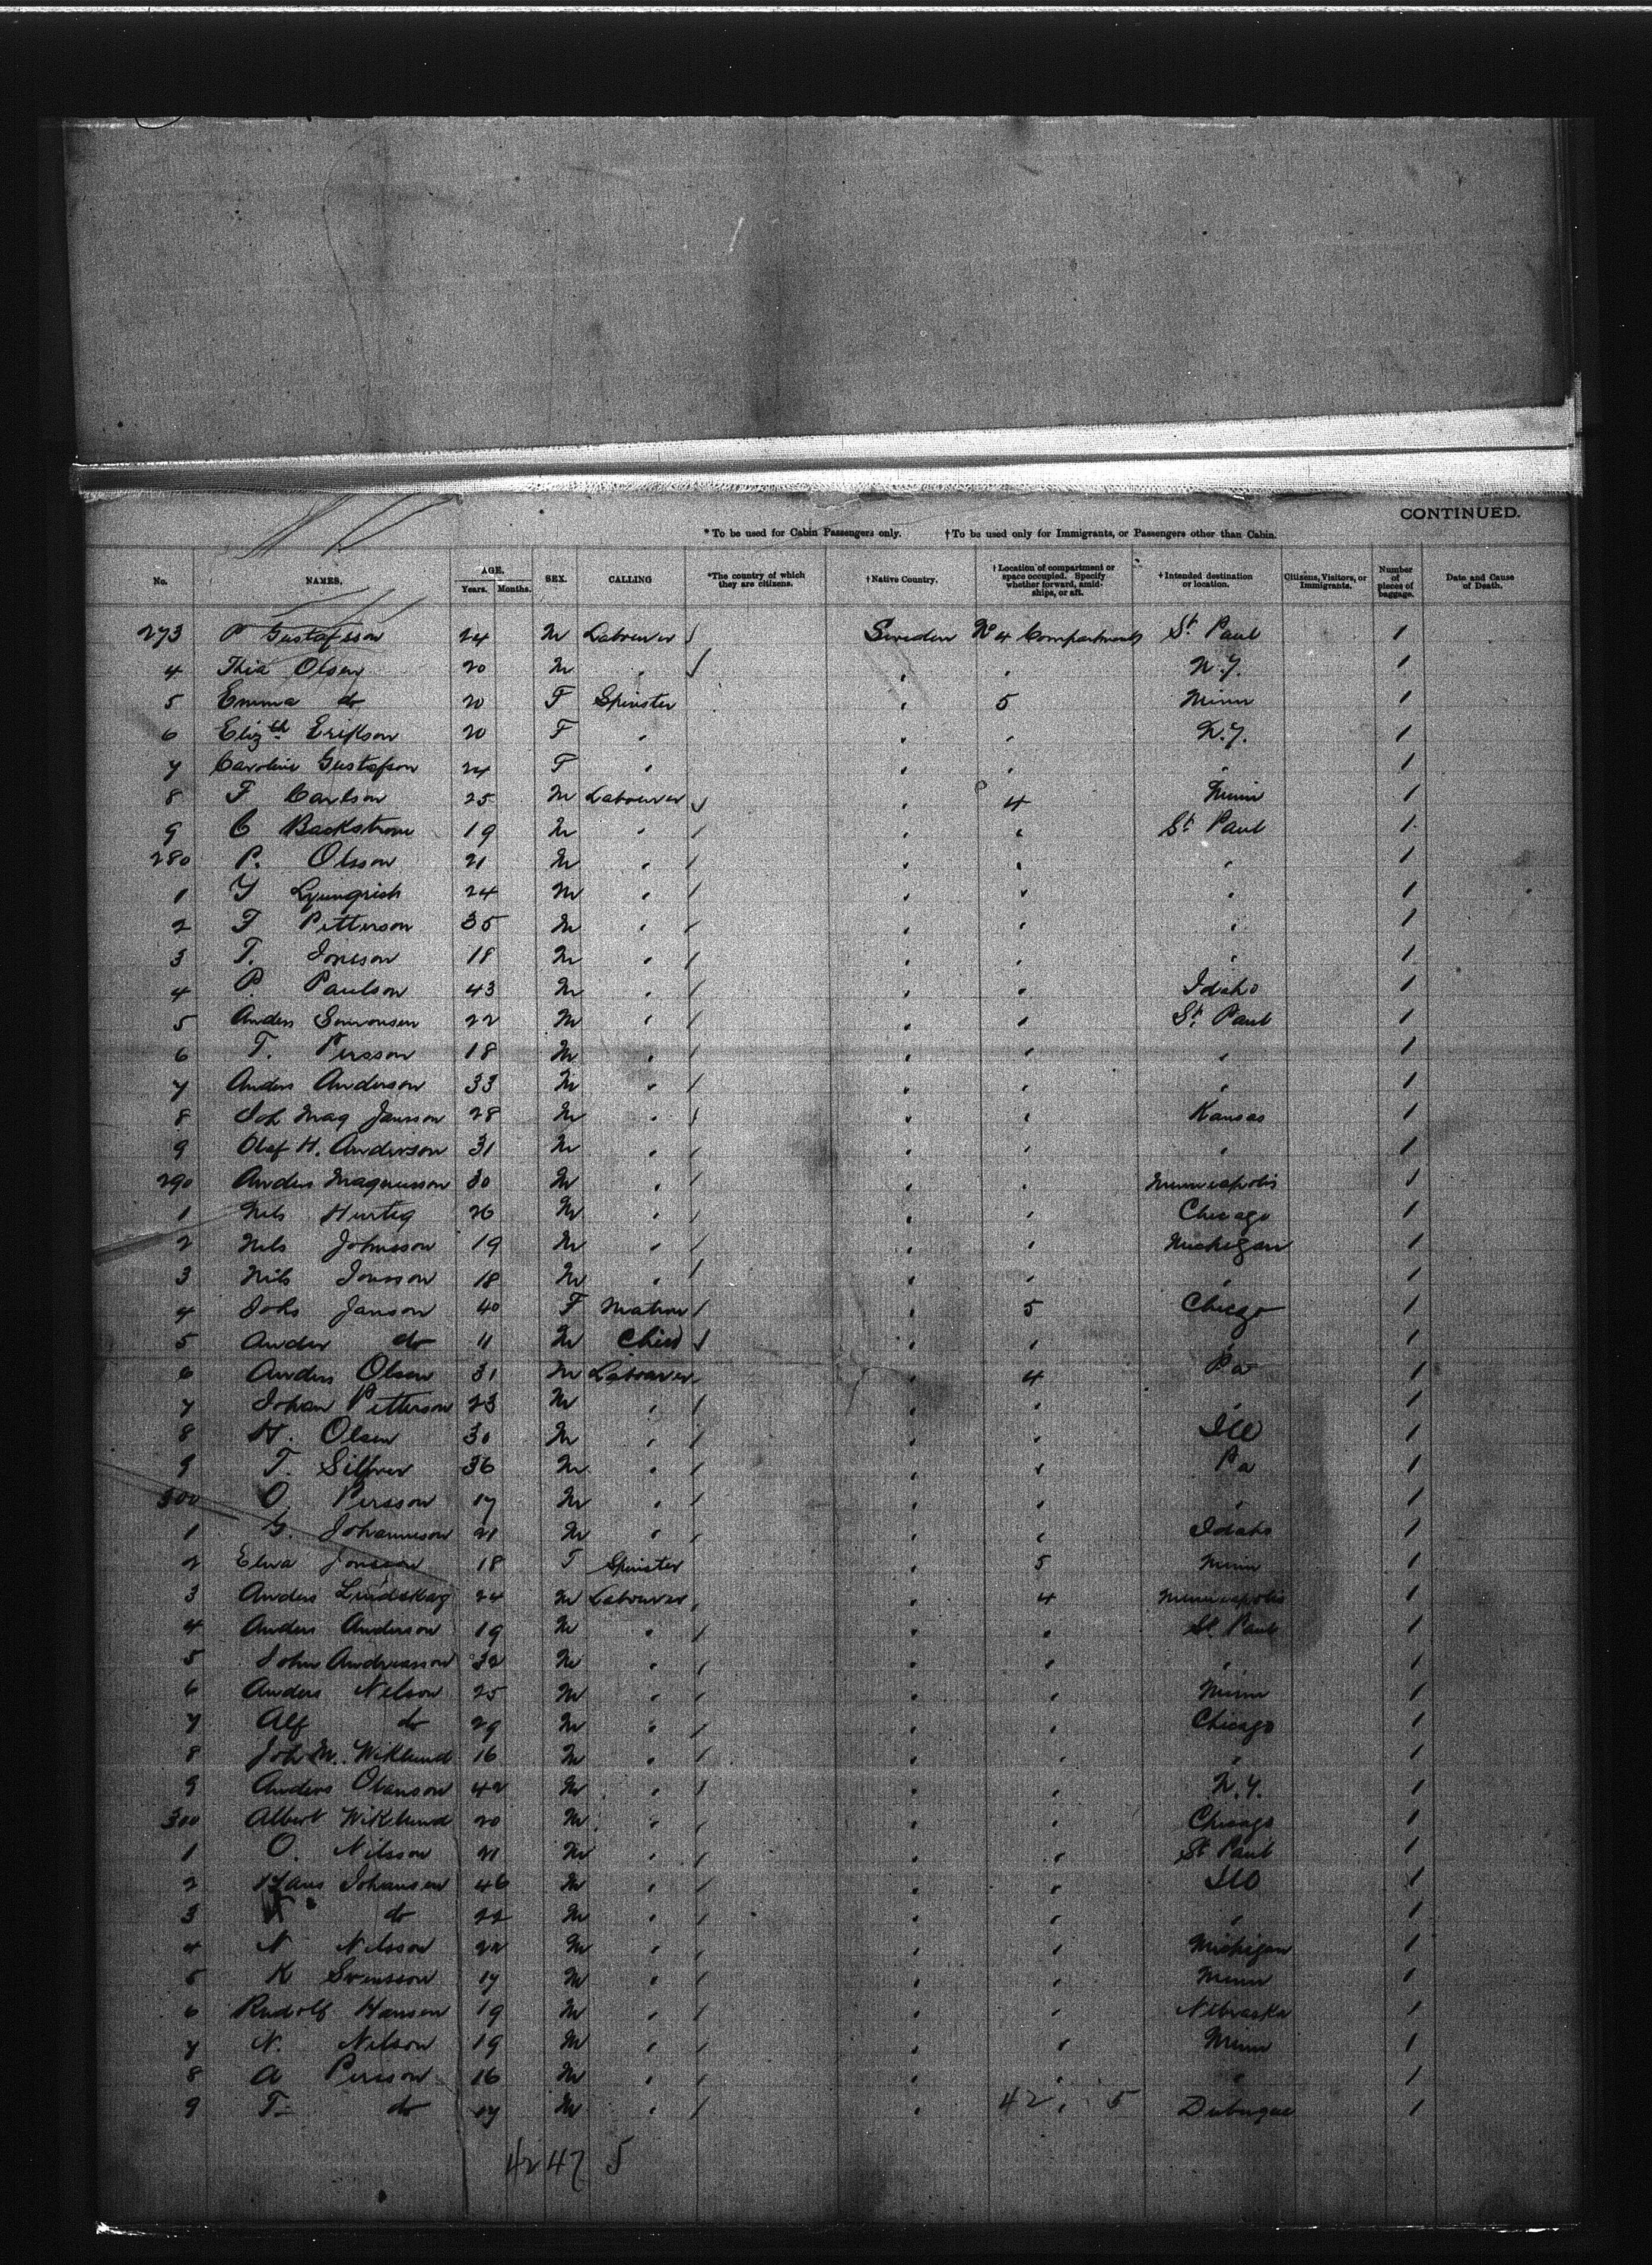 CONTINUED.
*To be used for Cabin Passengers only. †To be used only for Immigrants, or Passengers other than Cabin.
No. NAMES. AGE. Years. Months. SEX. CALLING *The country of which they are citizens. †Native Country. †Location of compartment or space occupied. Specify whether forward, amidships, or aft. †Intended destination or location. Citizens, Visitors, or Immigrants. Number of pieces of baggage. Date and Cause of Death.
273 P Gustafsson 24 M Labourer / Sweden No 4 Compartment St. Paul 1
4 Thia Olsen 20 M " / " " N.Y. 1
5 Emma do 20 F Spinster " 5 Minn 1
6 Elizth Erikson 20 F " " " N.Y. 1
7 Caroline Gustafson 24 F " " " " 1
8 F Carlson 25 M Labourer / " 4 Minn 1
9 C Backstrom 19 M " / " " St. Paul 1
280 P. Olsson 21 M " / " " " 1
1 Y 24 M " / " " " 1
2 F Petterson 35 M " / " " " 1
3 T. Jonsson 18 M " / " " " 1
4 P. Paulson 43 M " / " " Idaho 1
5 Anders 22 M " / " " St. Paul 1
6 T. Persson 18 M " / " " " 1
7 Anders Anderson 33 M " / " " " 1
8 Joh Mag Jansson 28 M " / " " Kansas 1
9 Olof H. Anderson 31 M " / " " " 1
290 Anders Magnusson 30 M " / " " Minneapolis 1
1 Nils Hurtig 26 M " / " " Chicago 1
2 Nils Johnsson 19 M " / " " Michigan 1
3 Nils Jonsson 18 M " / " " " 1
4 Johs Janson 40 F Matron / " 5 Chicago 1
5 Ander do 11 M Child / " " " 1
6 Anders Olson 31 M Labourer / " 4 Pa 1
7 Johan Petterson 23 M " / " " " 1
8 H. Olsen 30 M " / " " Ill 1
9 T. Silfver 36 M " / " " Pa 1
300 O. Persson 17 M " / " " " 1
1 G. Johanneson 21 M " / " " Idaho 1
2 Elna Jonsson 18 F Spinster " 5 Minn 1
3 Anders Lindskog 24 M Labourer / " 4 Minneapolis 1
4 Anders Anderson 19 M " / " " St. Paul 1
5 John Andreasson 32 M " / " " " 1
6 Anders Nelson 25 M " / " " Minn 1
7 Alf do 29 M " / " " Chicago 1
8 Joh M. Wiklund 16 M " / " " " 1
9 Anders Olanson 42 M " / " " N.Y. 1
300 Albert Wiklund 20 M " / " " Chicago 1
1 O. Nilsson 21 M " / " " St Paul 1
2 Hans Johansen 46 M " / " " Ill 1
3 do 22 M " / " " " 1
4 N Nilsson 22 M " / " " Michigan 1
5 K Svensson 17 M " / " " Minn 1
6 Rudolf Hansen 19 M " / " " Nebraska 1
7 N. Nelson 19 M " / " " Minn 1
8 A Persson 16 M " / " " " 1
9 T. do 17 M " / " 42 " 5 Dubuque 1
42 47 5